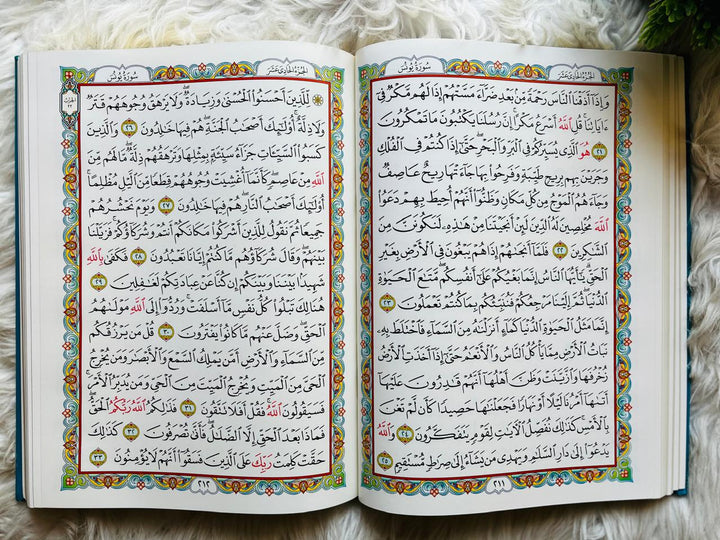 الجُزْءُ الحَادِي عَشَرَ
سُورَةُ يُونُسَ
وَإِذَآ أَذَقْنَا ٱلنَّاسَ رَحْمَةً مِّنۢ بَعْدِ ضَرَّآءَ مَسَّتْهُمْ إِذَا لَهُم مَّكْرٌ فِىٓ
ءَايَاتِنَا ۚ قُلِ ٱللَّهُ أَسْرَعُ مَكْرًا ۚ إِنَّ رُسُلَنَا يَكْتُبُونَ مَا تَمْكُرُونَ
٢١ هُوَ ٱلَّذِى يُسَيِّرُكُمْ فِى ٱلْبَرِّ وَٱلْبَحْرِ ۖ حَتَّىٰٓ إِذَا كُنتُمْ فِى ٱلْفُلْكِ
وَجَرَيْنَ بِهِم بِرِيحٍ طَيِّبَةٍ وَفَرِحُوا۟ بِهَا جَآءَتْهَا رِيحٌ عَاصِفٌ
وَجَآءَهُمُ ٱلْمَوْجُ مِن كُلِّ مَكَانٍ وَظَنُّوٓا۟ أَنَّهُمْ أُحِيطَ بِهِمْ ۙ دَعَوُا۟
ٱللَّهَ مُخْلِصِينَ لَهُ ٱلدِّينَ لَئِنْ أَنجَيْتَنَا مِنْ هَـٰذِهِۦ لَنَكُونَنَّ مِنَ
ٱلشَّـٰكِرِينَ ٢٢ فَلَمَّآ أَنجَىٰهُمْ إِذَا هُمْ يَبْغُونَ فِى ٱلْأَرْضِ بِغَيْرِ
ٱلْحَقِّ ۗ يَـٰٓأَيُّهَا ٱلنَّاسُ إِنَّمَا بَغْيُكُمْ عَلَىٰٓ أَنفُسِكُم ۖ مَّتَـٰعَ ٱلْحَيَوٰةِ
ٱلدُّنْيَا ۖ ثُمَّ إِلَيْنَا مَرْجِعُكُمْ فَنُنَبِّئُكُم بِمَا كُنتُمْ تَعْمَلُونَ ٢٣
إِنَّمَا مَثَلُ ٱلْحَيَوٰةِ ٱلدُّنْيَا كَمَآءٍ أَنزَلْنَـٰهُ مِنَ ٱلسَّمَآءِ فَٱخْتَلَطَ بِهِۦ
نَبَاتُ ٱلْأَرْضِ مِمَّا يَأْكُلُ ٱلنَّاسُ وَٱلْأَنْعَـٰمُ حَتَّىٰٓ إِذَآ أَخَذَتِ ٱلْأَرْضُ
زُخْرُفَهَا وَٱزَّيَّنَتْ وَظَنَّ أَهْلُهَآ أَنَّهُمْ قَـٰدِرُونَ عَلَيْهَآ
أَتَىٰهَآ أَمْرُنَا لَيْلًا أَوْ نَهَارًا فَجَعَلْنَـٰهَا حَصِيدًا كَأَن لَّمْ تَغْنَ
بِٱلْأَمْسِ ۚ كَذَٰلِكَ نُفَصِّلُ ٱلْـَٔايَـٰتِ لِقَوْمٍ يَتَفَكَّرُونَ ٢٤ وَٱللَّهُ
يَدْعُوٓا۟ إِلَىٰ دَارِ ٱلسَّلَـٰمِ وَيَهْدِى مَن يَشَآءُ إِلَىٰ صِرَٰطٍ مُّسْتَقِيمٍ ٢٥
٢١١
الجُزْءُ الحَادِي عَشَرَ
سُورَةُ يُونُسَ
الحزب
٢٢
۞ لِّلَّذِينَ أَحْسَنُوا۟ ٱلْحُسْنَىٰ وَزِيَادَةٌ ۖ وَلَا يَرْهَقُ وُجُوهَهُمْ قَتَرٌ
وَلَا ذِلَّةٌ ۚ أُو۟لَـٰٓئِكَ أَصْحَـٰبُ ٱلْجَنَّةِ ۖ هُمْ فِيهَا خَـٰلِدُونَ ٢٦ وَٱلَّذِينَ
كَسَبُوا۟ ٱلسَّيِّـَٔاتِ جَزَآءُ سَيِّئَةٍۭ بِمِثْلِهَا وَتَرْهَقُهُمْ ذِلَّةٌ ۖ مَّا لَهُم مِّنَ
ٱللَّهِ مِنْ عَاصِمٍ ۖ كَأَنَّمَآ أُغْشِيَتْ وُجُوهُهُمْ قِطَعًا مِّنَ ٱلَّيْلِ مُظْلِمًا ۚ
أُو۟لَـٰٓئِكَ أَصْحَـٰبُ ٱلنَّارِ ۖ هُمْ فِيهَا خَـٰلِدُونَ ٢٧ وَيَوْمَ نَحْشُرُهُمْ
جَمِيعًا ثُمَّ نَقُولُ لِلَّذِينَ أَشْرَكُوا۟ مَكَانَكُمْ أَنتُمْ وَشُرَكَآؤُكُمْ ۚ فَزَيَّلْنَا
بَيْنَهُمْ ۖ وَقَالَ شُرَكَآؤُهُم مَّا كُنتُمْ إِيَّانَا تَعْبُدُونَ ٢٨ فَكَفَىٰ بِٱللَّهِ
شَهِيدًۢا بَيْنَنَا وَبَيْنَكُمْ إِن كُنَّا عَنْ عِبَادَتِكُمْ لَغَـٰفِلِينَ ٢٩
هُنَالِكَ تَبْلُوا۟ كُلُّ نَفْسٍ مَّآ أَسْلَفَتْ ۚ وَرُدُّوٓا۟ إِلَى ٱللَّهِ مَوْلَىٰهُمُ
ٱلْحَقِّ ۖ وَضَلَّ عَنْهُم مَّا كَانُوا۟ يَفْتَرُونَ ٣٠ قُلْ مَن يَرْزُقُكُم
مِّنَ ٱلسَّمَآءِ وَٱلْأَرْضِ أَمَّن يَمْلِكُ ٱلسَّمْعَ وَٱلْأَبْصَـٰرَ وَمَن يُخْرِجُ
ٱلْحَىَّ مِنَ ٱلْمَيِّتِ وَيُخْرِجُ ٱلْمَيِّتَ مِنَ ٱلْحَىِّ وَمَن يُدَبِّرُ ٱلْأَمْرَ ۚ
فَسَيَقُولُونَ ٱللَّهُ ۚ فَقُلْ أَفَلَا تَتَّقُونَ ٣١ فَذَٰلِكُمُ ٱللَّهُ رَبُّكُمُ ٱلْحَقُّ ۖ
فَمَاذَا بَعْدَ ٱلْحَقِّ إِلَّا ٱلضَّلَـٰلُ ۖ فَأَنَّىٰ تُصْرَفُونَ ٣٢ كَذَٰلِكَ
حَقَّتْ كَلِمَتُ رَبِّكَ عَلَى ٱلَّذِينَ فَسَقُوٓا۟ أَنَّهُمْ لَا يُؤْمِنُونَ ٣٣
٢١٢